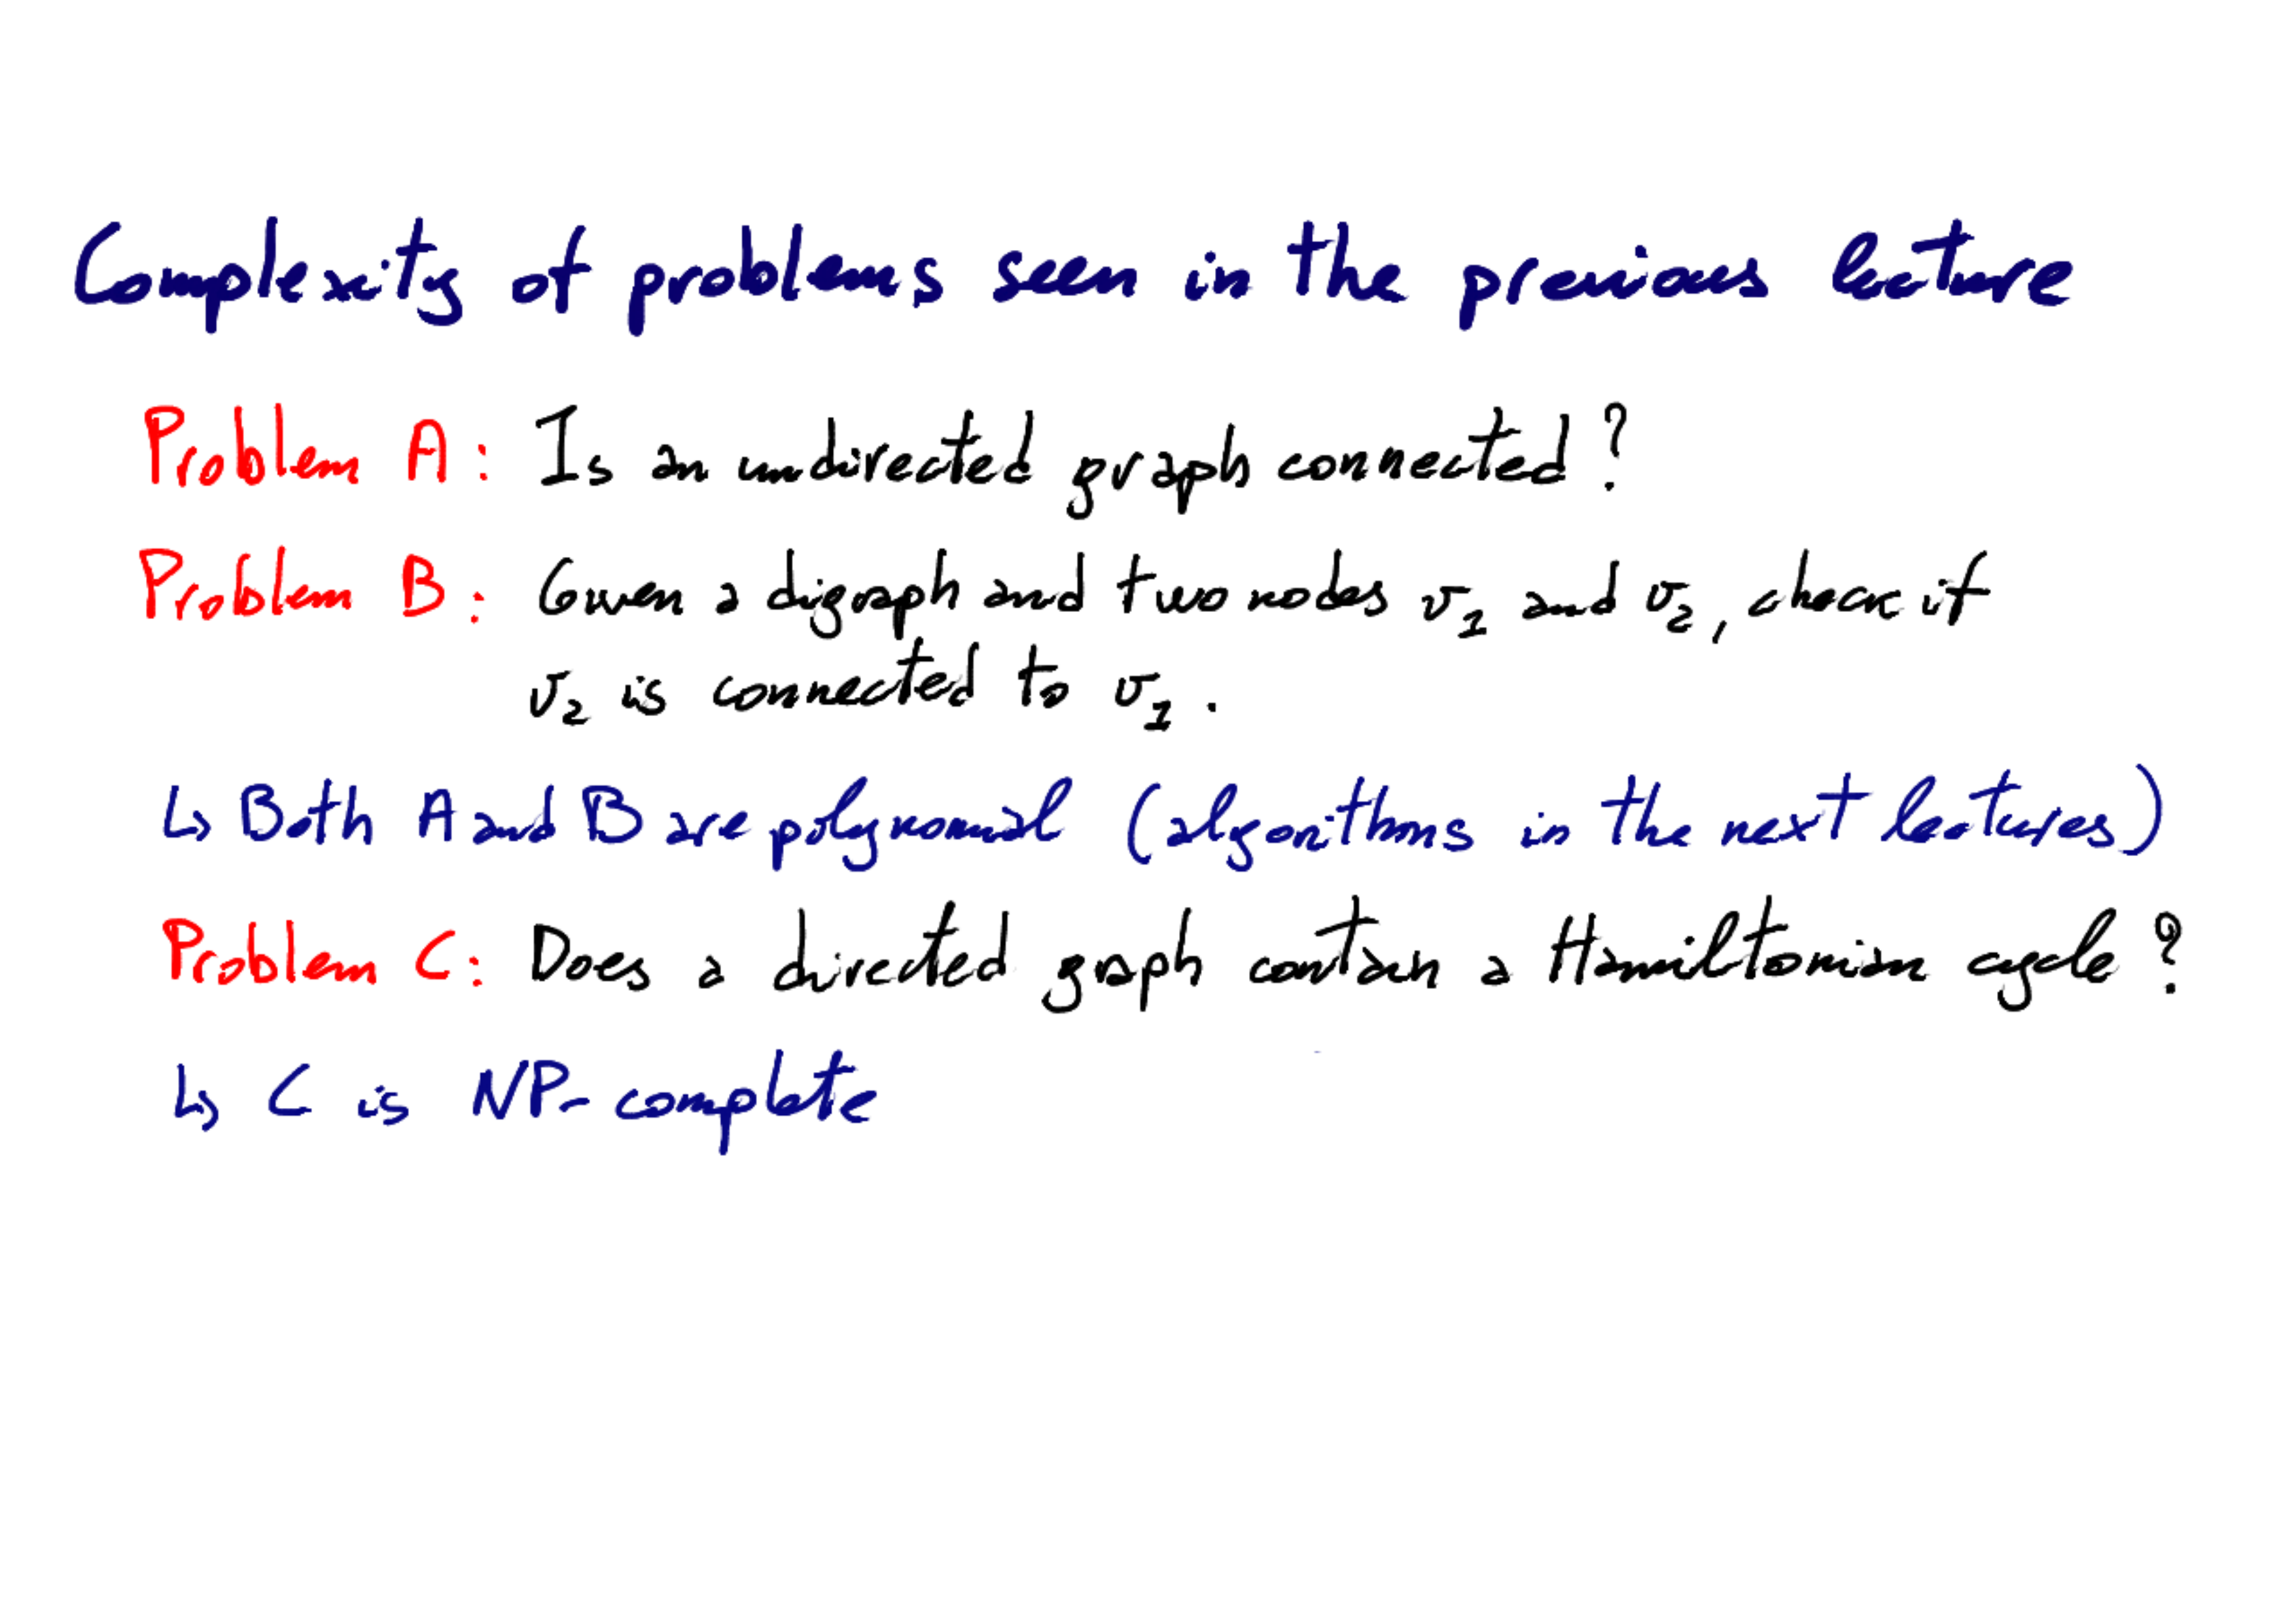 Complexity of problems seen in the previous lecture
Problem A: Is an undirected graph connected?
Problem B: Given a digraph and two nodes v₁ and v₂, check if
v₂ is connected to v₁.
↳ Both A and B are polynomial (algorithms in the next lectures)
Problem C: Does a directed graph contain a Hamiltonian cycle?
↳ C is NP-complete